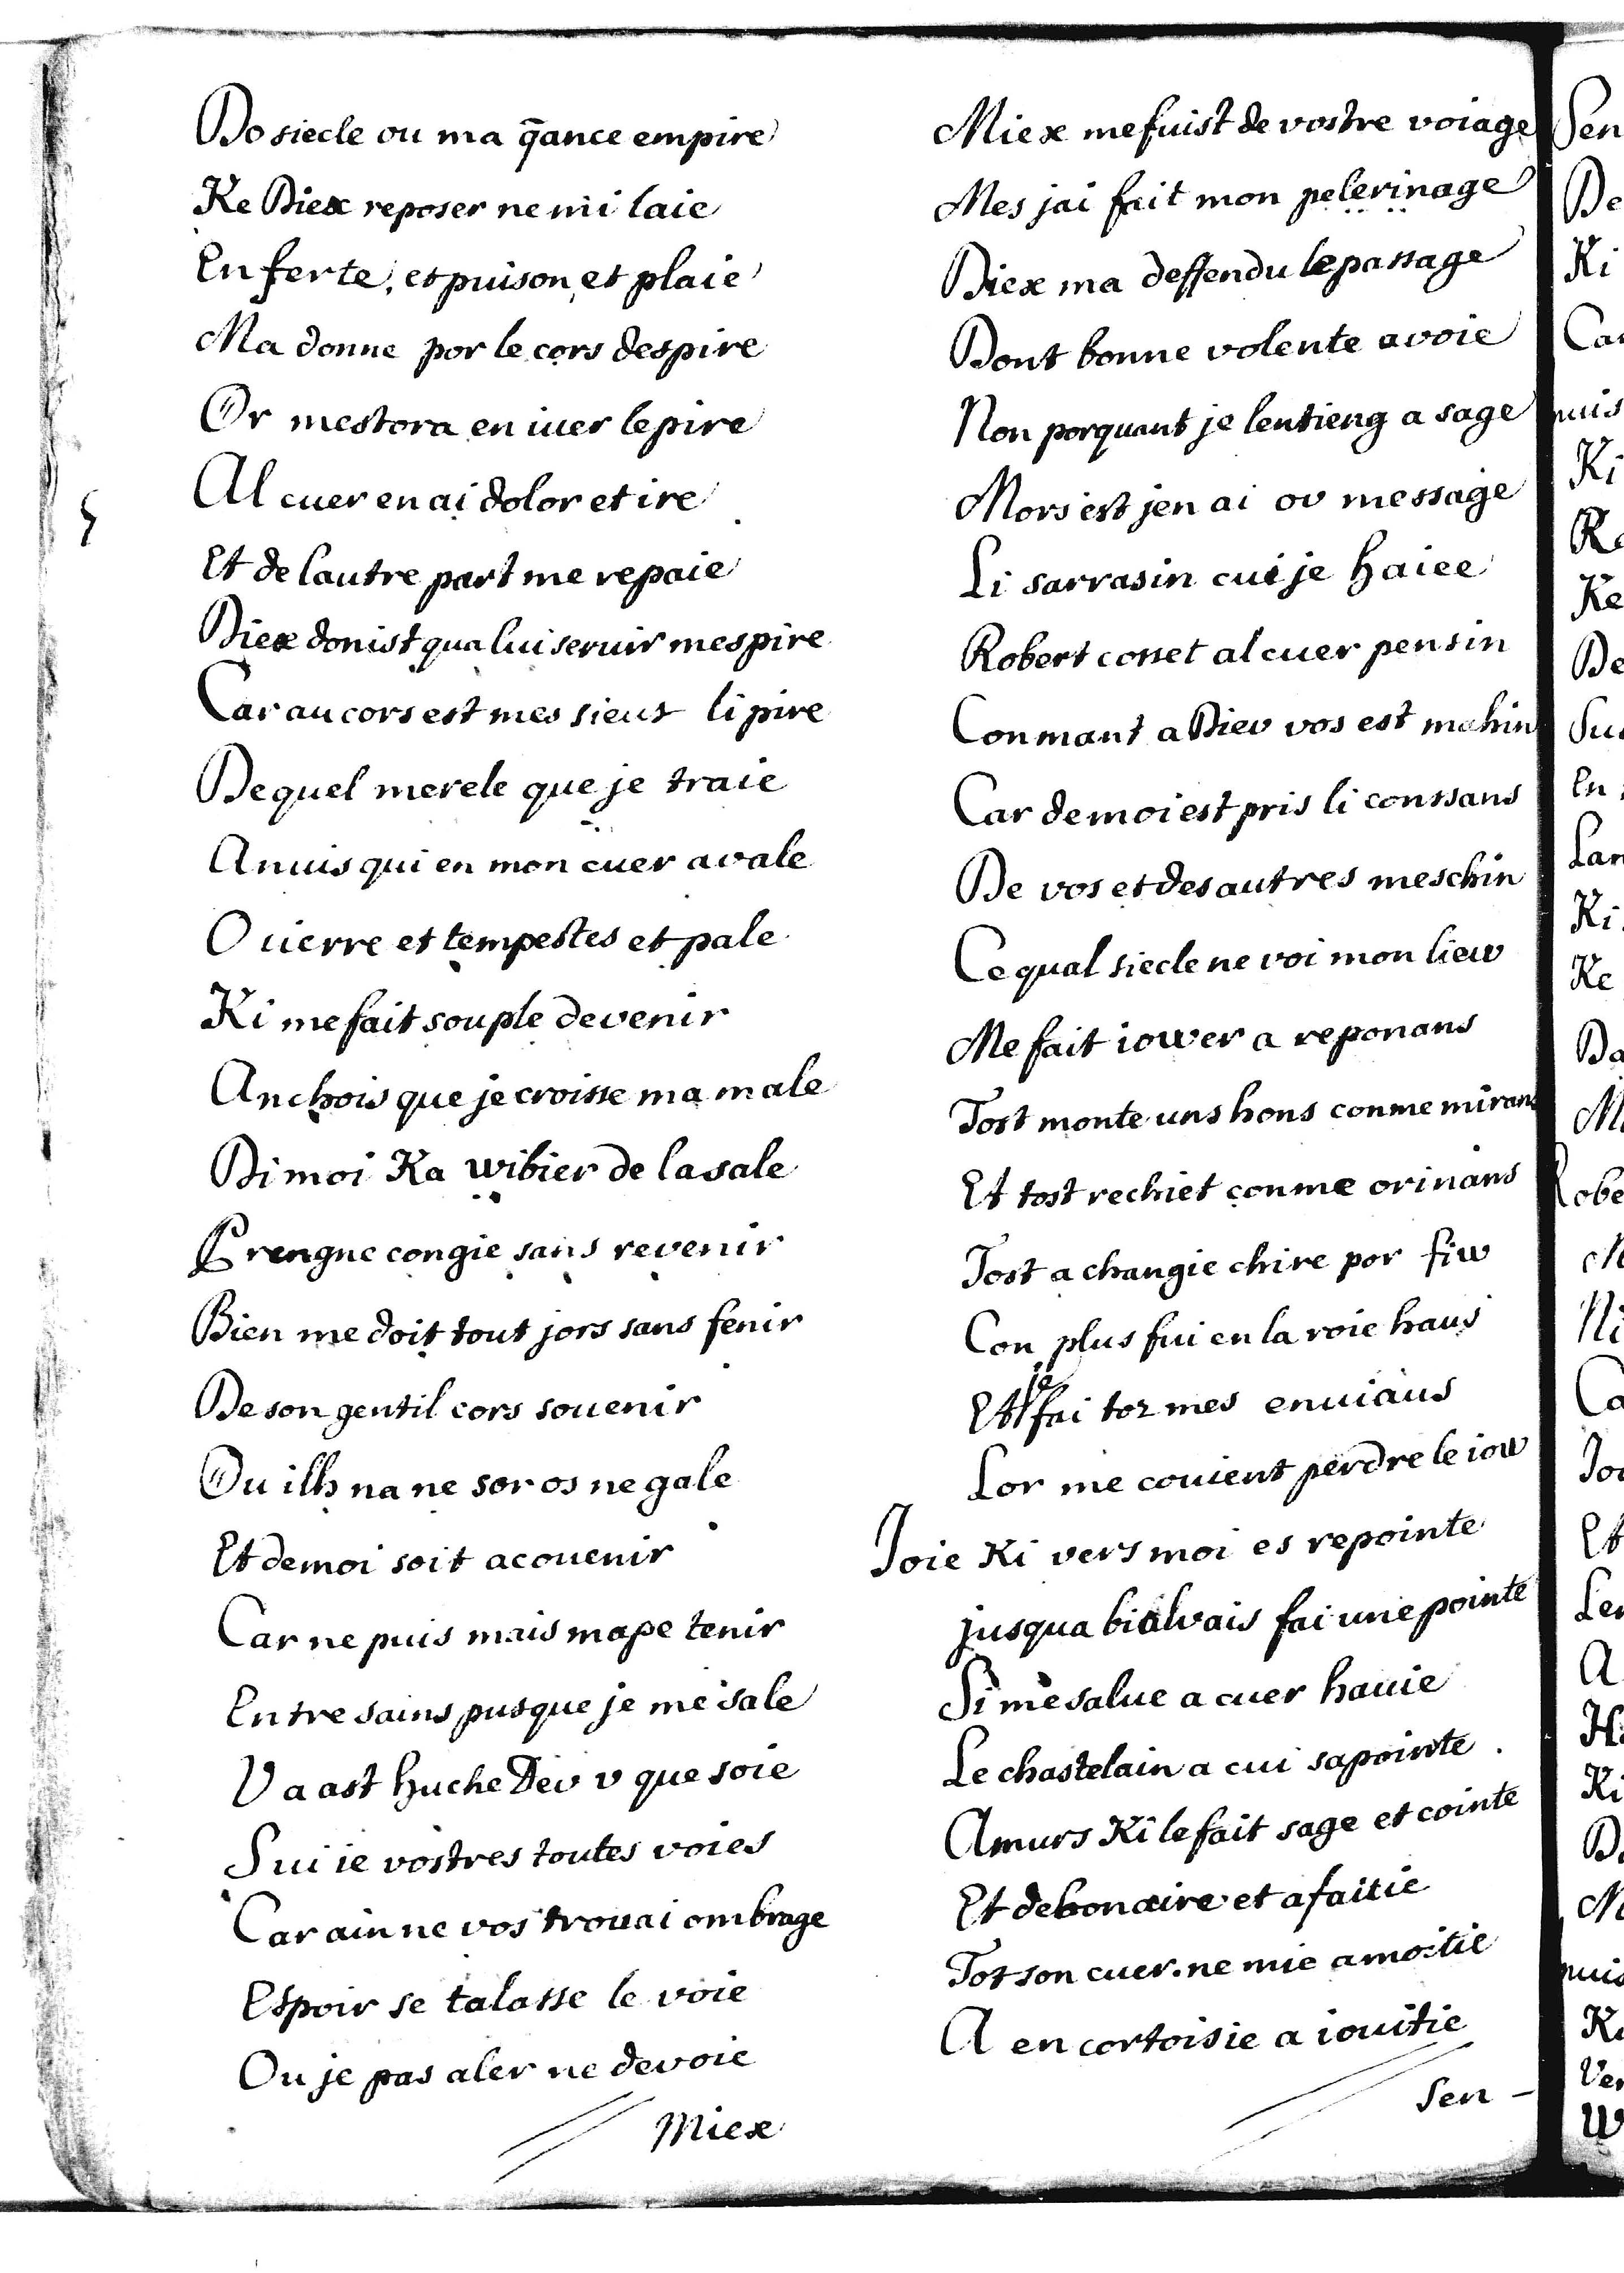 Do siecle ou ma q̃ance empire
Ke Diex reposer ne mi laie
Enferte, et puison, et plaie
Ma donne por le cors despire
Or mestora en iuer le pire
Al cuer en ai dolor et ire
Et de lautre part me repaie
Diex donist qua lui seruir mespire
Car au cors est mes sieus li pire
De quel merele que je traie
Anuis qui en mon cuer avale
Ouierre et tempestes et pale
Ki me fait souple devenir
Anchois que je croisse ma male
Di moi Ka wibier de la sale
Prengne congie sans revenir
Bien me doit tout jors sans fenir
De son gentil cors souenir
Ou ilh na ne sor os ne gale
Et de moi soit acouenir
Car ne puis mais mape tenir
Entre sains pusque je me sale
Vaast huche Deu v que soie
Sui ie vostres toutes voies
Car ainne vos trouai ombrage
Espoir se talasse le voie
Ou je pas aler ne devoie
Miex
Miex me fuist de vostre voiage
Mes jai fait mon pelerinage
Diex ma deffendu le passage
Dont bonne volente avoie
Non porquant je lentieng a sage
Mors est jen ai ov message
Li sarrasin cui je haiee
Robert cosset al cuer pensin
Conmant a Diev vos est mahin
Car de moi est pris li conssans
De vos et des autres meschin
Ce qual siecle ne voi mon liew
Me fait iower a reponans
Tost monte uns hons conme mirans
Et tost rechiet conme orinans
Tost a changie chire por fiw
Con plus fui en la roie haus
Et je fai toz mes enuiaus
Lor me couient perdre le iow
Joie Ki vers moi es repointe
jusqua bialvais fai une pointe
Si me salue a cuer hauie
Le chastelain a cui sapointe .
Amurs Ki le fait sage et cointe
Et debonaire et afaitie
Tot son cuer. ne mie amoitie
A en cortoisie a iouitie
Sen -